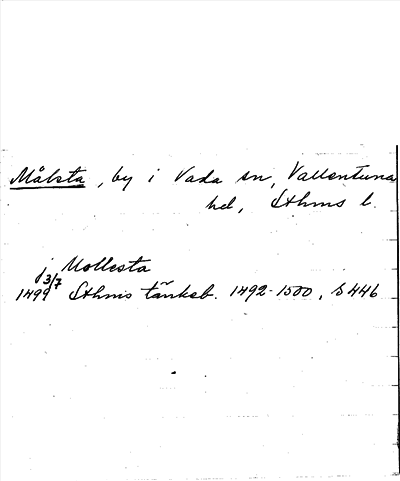 Målsta, by i Vada sn, Vallentuna
hd, Sthms l.
j Mollesta
1499 3/7 Sthms tänkeb. 1492-1500, s 446